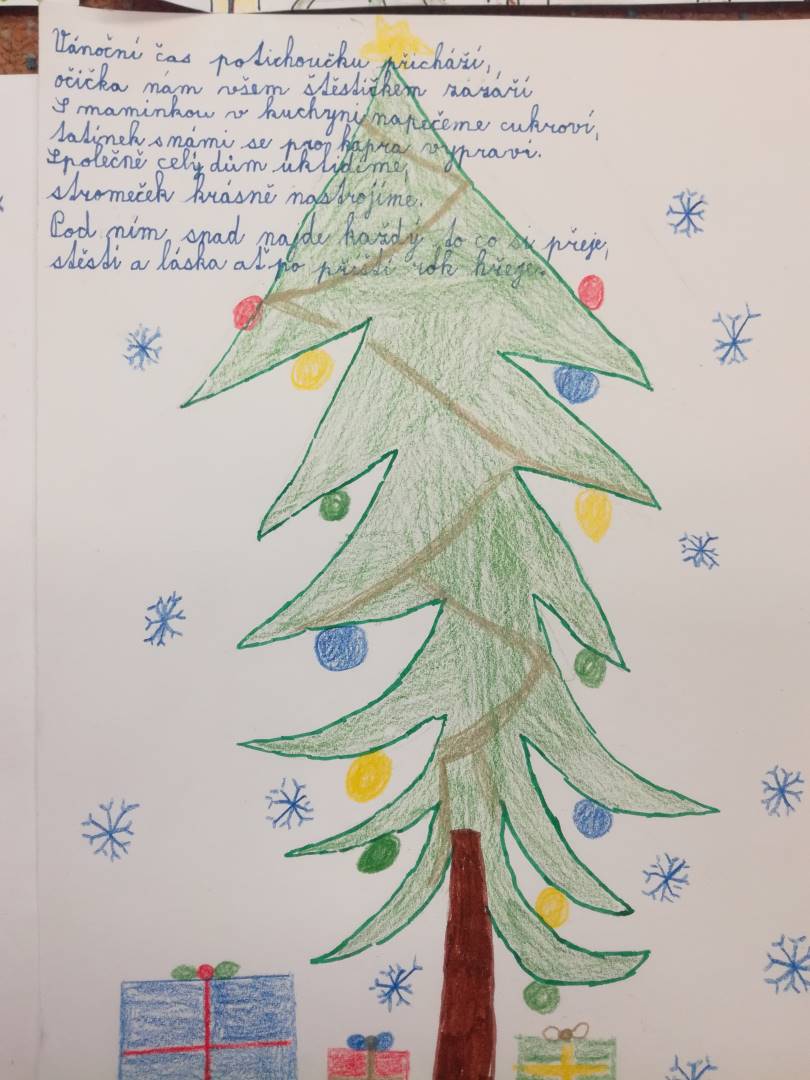 Vánoční čas potichoučku přichází,
očička nám všem štěstíčkem zazáří
S maminkou v kuchyni napečeme cukroví,
tatínek s námi se pro kapra vypraví.
Společně celý dům uklidíme,
stromeček krásně nastrojíme.
Pod ním snad najde každý to co si přeje,
štěstí a láska ať po příští rok hřeje.